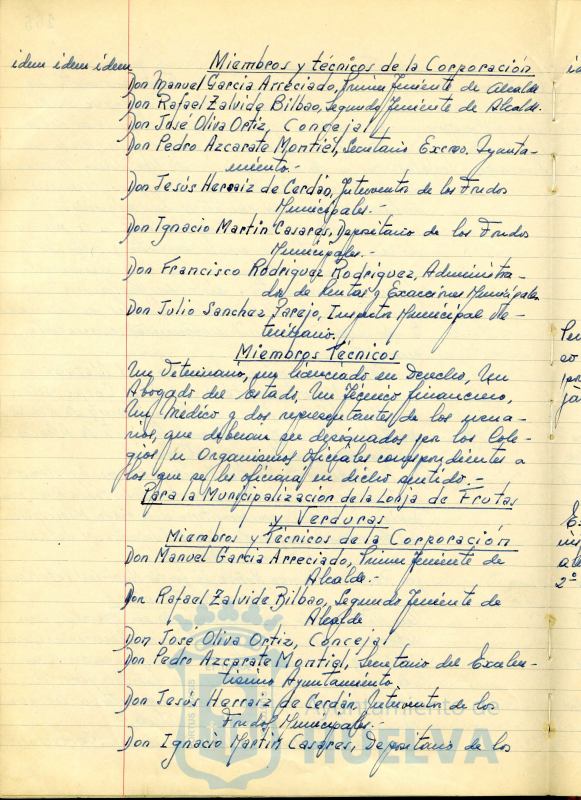 idem idem idem
Miembros y técnicos de la Corporación
Don Manuel Garcia Arreciado, Primer Teniente de Alcalde
Don Rafael Zalvide Bilbao, Segundo Teniente de Alcalde.
Don José Oliva Ortiz, Concejal
Don Pedro Azcarate Montiel, Secretario Excmo. Ayunta-
miento.-
Don Jesús Herraiz de Cerdán, Interventor de los Fondos
Municipales.-
Don Ignacio Martin Casares, Depositario de los Fondos
Municipales.-
Don Francisco Rodriguez Rodriguez, Administra-
dor de Rentas y Exacciones Municipales
Don Julio Sanchez Parejo, Inspector Municipal Ve-
terinario.
Miembros Técnicos
Un Veterinario, un licenciado en Derecho, Un
Abogado del Estado, Un Técnico financiero,
Un Médico y dos representantes de los usua-
rios, que deberan ser designados por los Cole-
gios u Organismos Oficiales correspondientes a
los que se les oficiará en dicho sentido.-
Para la Municipalización de la Lonja de Frutas
y Verduras
Miembros y Técnicos de la Corporación
Don Manuel Garcia Arreciado, Primer Teniente de
Alcalde.-
Don Rafael Zalvide Bilbao, Segundo Teniente de
Alcalde
Don José Oliva Ortiz, Concejal
Don Pedro Azcarate Montiel, Secretario del Excelen-
tisimo Ayuntamiento
Don Jesús Herraiz de Cerdán, Interventor de los
Fondos Municipales.-
Don Ignacio Martin Casares, Depositario de los
Ayuntamiento de
HUELVA